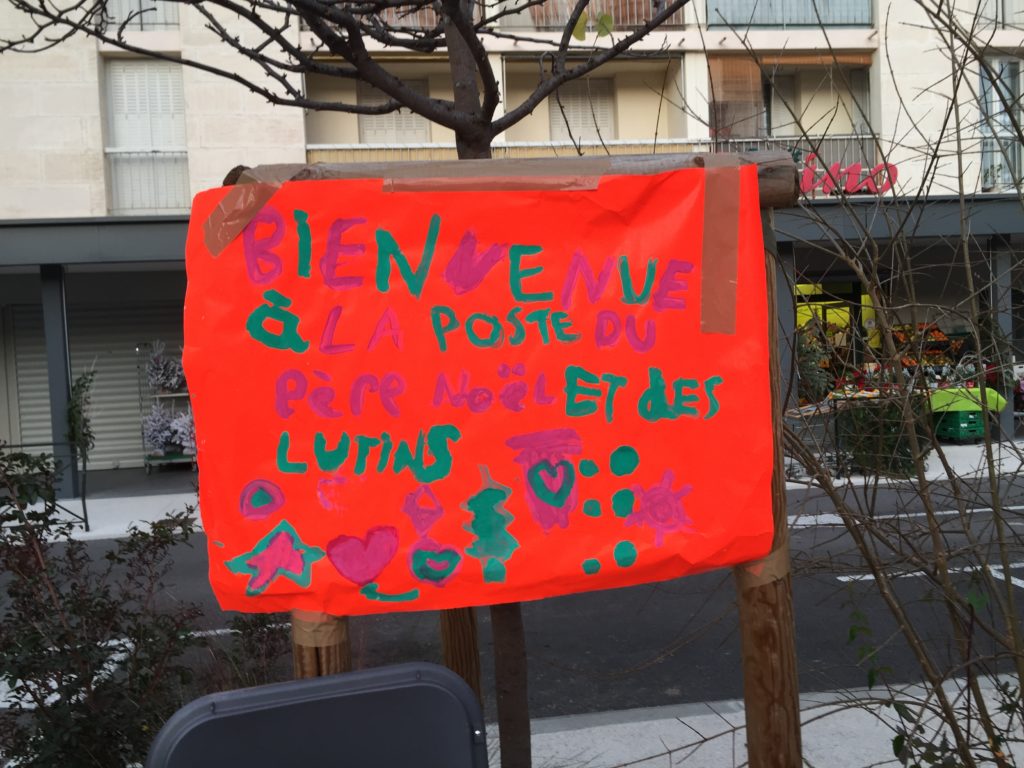 BIENVENUE
à LA POSTE DU
Père Noël ET dES
LUTINS